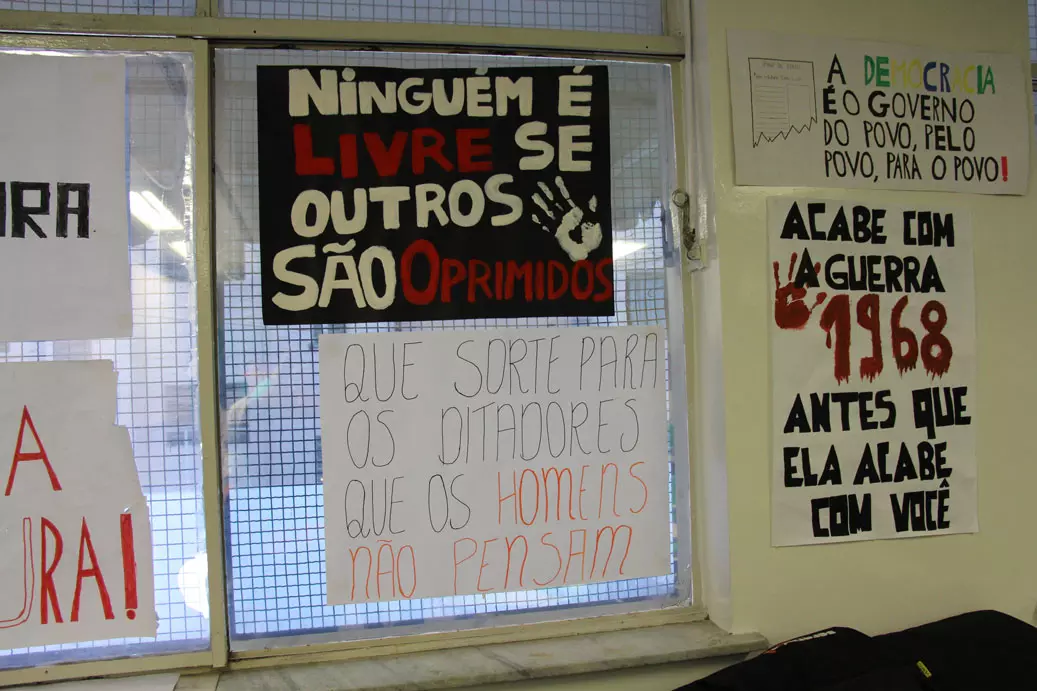 NINGUÉM É
LIVRE SE
OUTROS
SÃO OPRIMIDOS
QUE SORTE PARA
OS DITADORES
QUE OS HOMENS
NÃO PENSAM
A DEMOCRACIA
É O GOVERNO
DO POVO, PELO
POVO, PARA O POVO!
ACABE COM
A GUERRA
1968
ANTES QUE
ELA ACABE
COM VOCÊ
RA
A
URA!